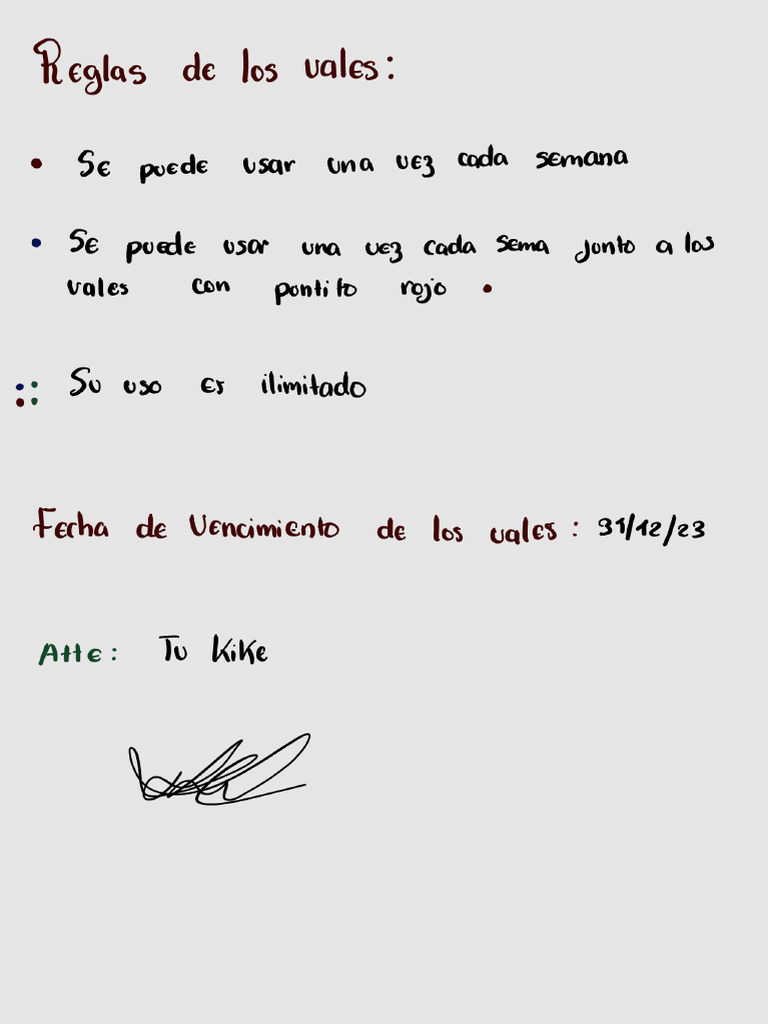 Reglas de los vales:
• Se puede usar una vez cada semana
• Se puede usar una vez cada sema junto a los
vales con puntito rojo •
:: Su uso es ilimitado
Fecha de Vencimiento de los vales: 31/12/23
Atte: Tu Kike